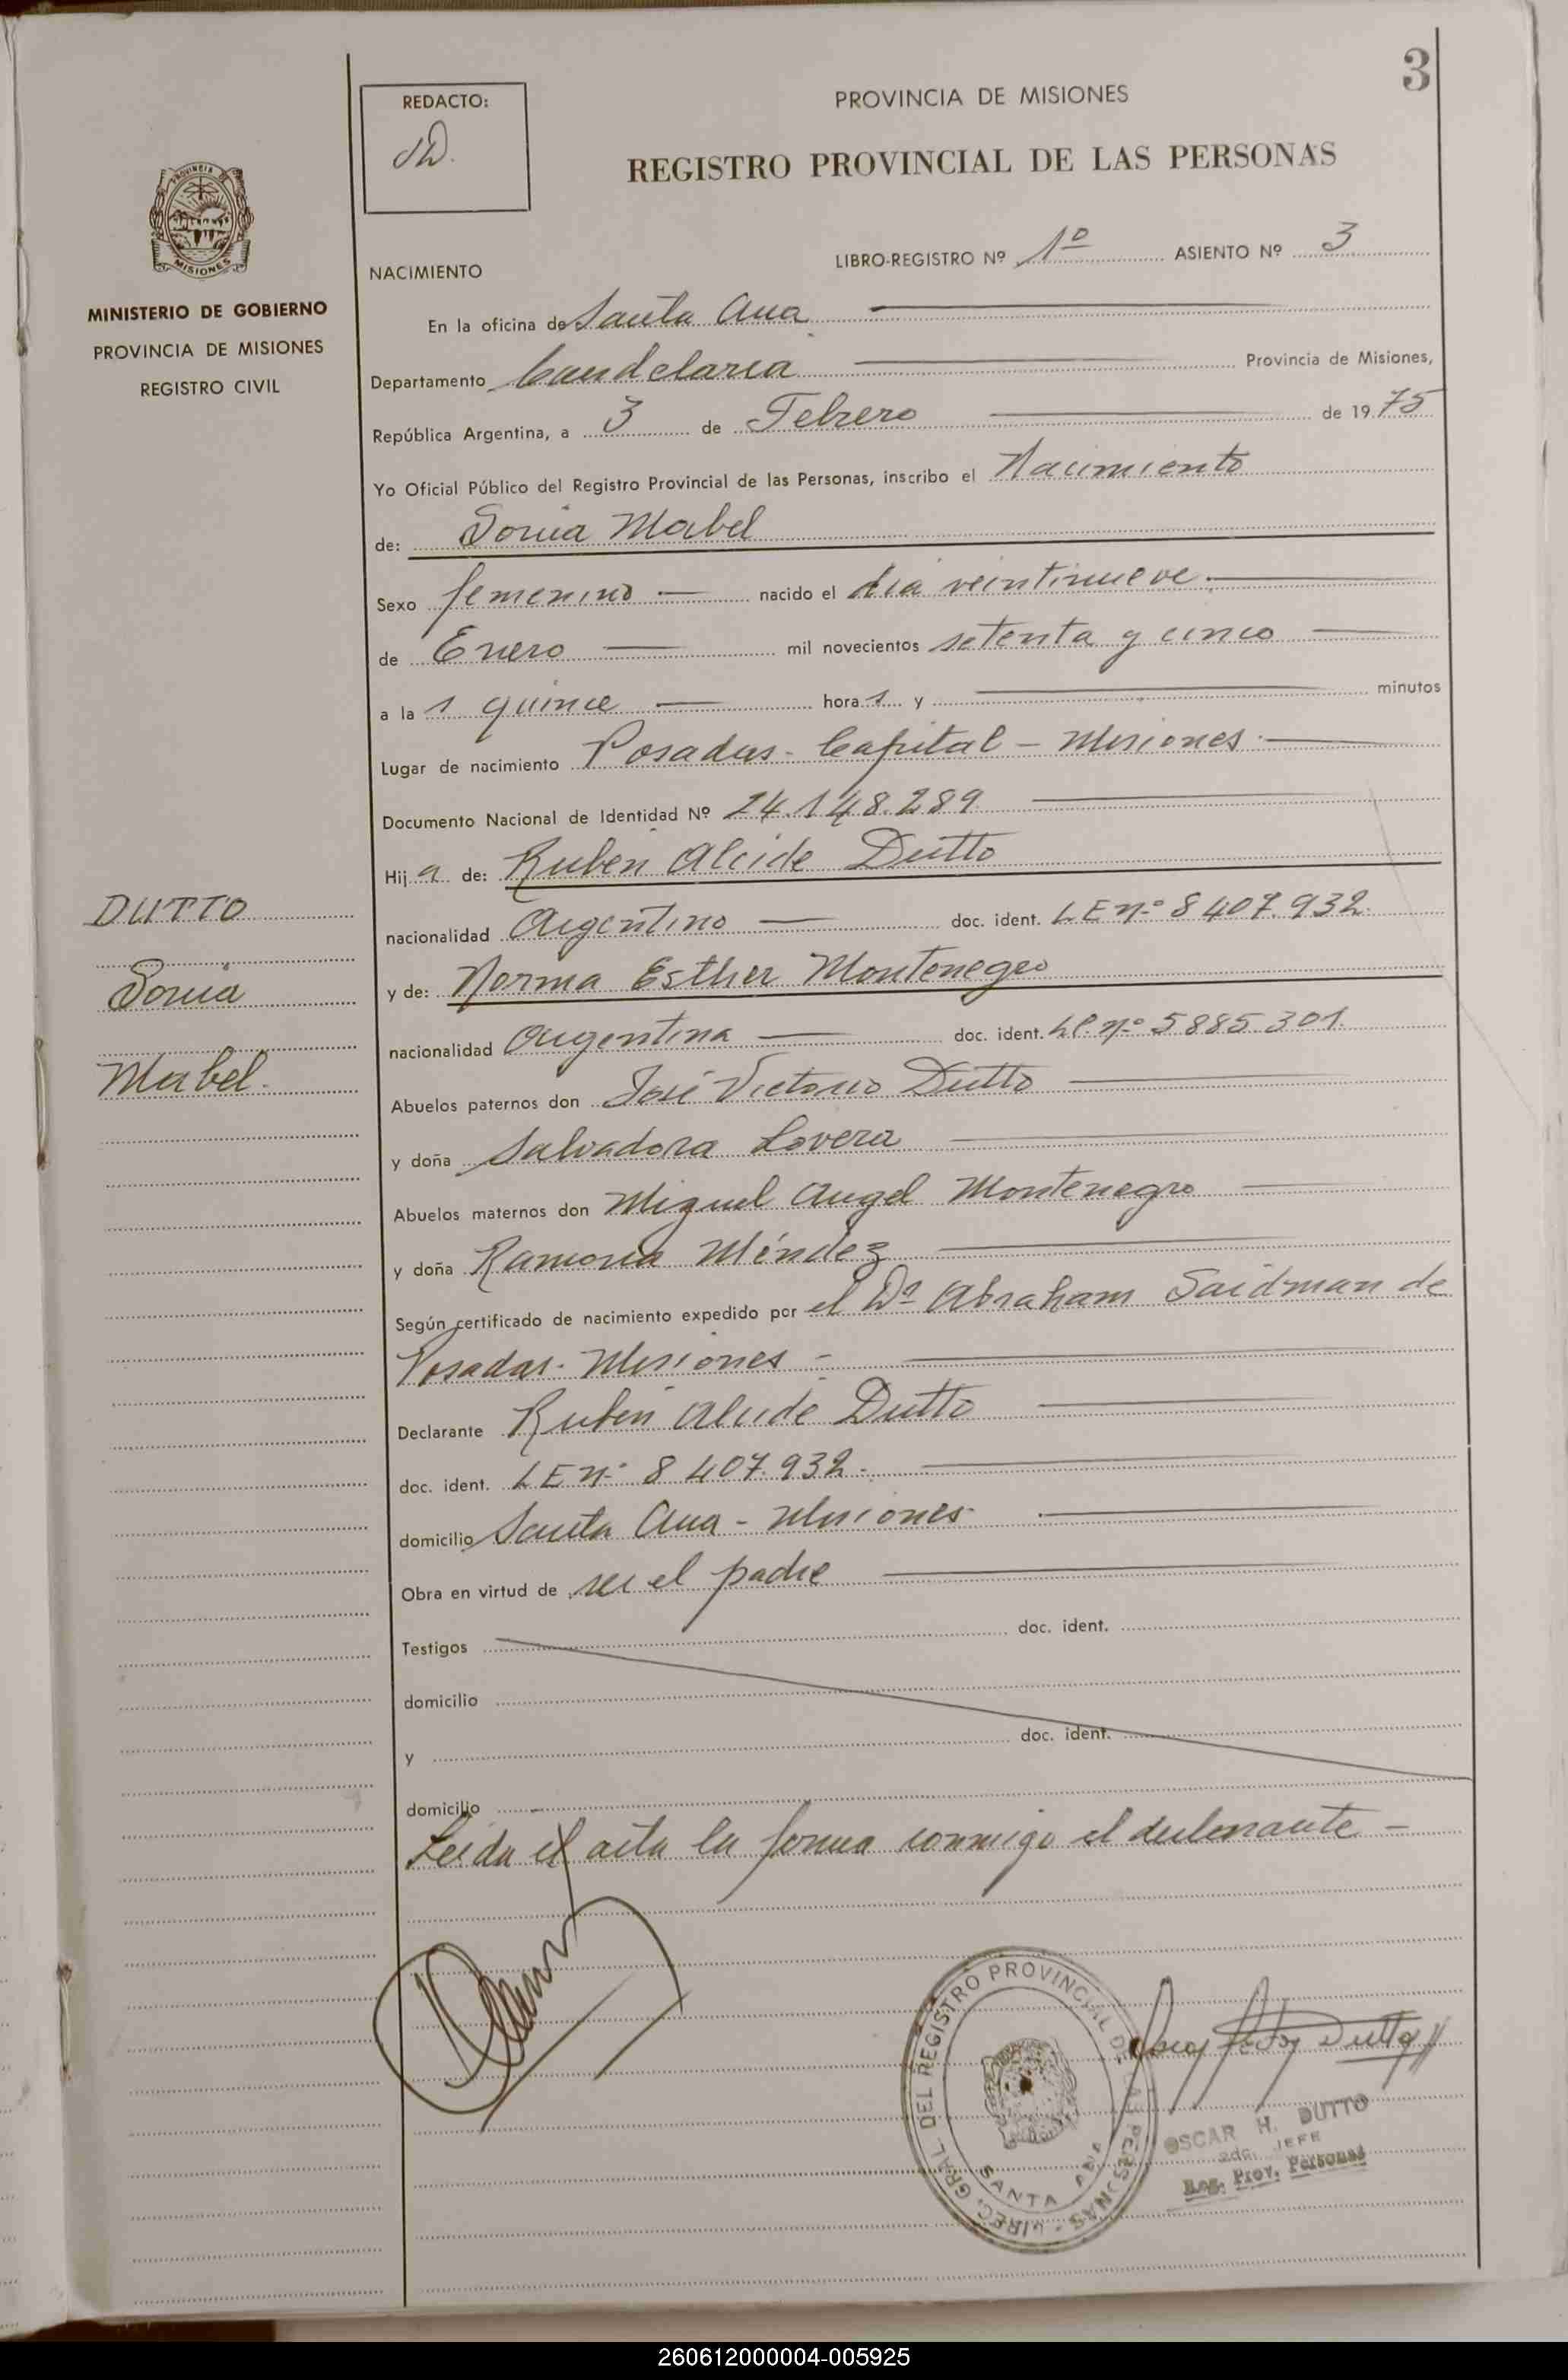 3
REDACTO:
PROVINCIA DE MISIONES
REGISTRO PROVINCIAL DE LAS PERSONAS
PROVINCIA DE
MISIONES
MINISTERIO DE GOBIERNO
PROVINCIA DE MISIONES
REGISTRO CIVIL
LIBRO-REGISTRO Nº 1º ASIENTO Nº 3
NACIMIENTO
En la oficina de Santa Ana
Departamento Candelaria Provincia de Misiones,
República Argentina, a 3 de Febrero de 1975
Yo Oficial Público del Registro Provincial de las Personas, inscribo el Nacimiento
de: Sonia Mabel
Sexo femenino — nacido el día veintinueve.—
de Enero — mil novecientos setenta y cinco —
a la s quince — hora s y — minutos
Lugar de nacimiento Posadas - Capital - Misiones.—
Documento Nacional de Identidad Nº 24.148.289 —
Hij a de: Ruben Alcide Dutto
nacionalidad Argentino — doc. ident. LE nº 8 407.932.
y de: Norma Esther Montenegro
nacionalidad Argentina — doc. ident. LC. nº 5885.301.
Abuelos paternos don José Victorio Dutto —
y doña Salvadora Lovera —
Abuelos maternos don Miguel Angel Montenegro —
y doña Ramona Méndez —
Según certificado de nacimiento expedido por el Dr Abraham Saidman de
Posadas - Misiones - —
Declarante Ruben Alcide Dutto —
doc. ident. LE nº 8 407.932. —
domicilio Santa Ana - Misiones —
Obra en virtud de ser el padre —
Testigos doc. ident.
domicilio
y doc. ident.
domicilio
Leída el acta la firma conmigo el declarante -
DUTTO
Sonia
Mabel.
DIREC. GRAL. DEL REGISTRO PROVINCIAL DE LAS PERSONAS -
SANTA ANA
OSCAR H. DUTTO
2do. JEFE
Reg. Prov. Personas
260612000004-005925